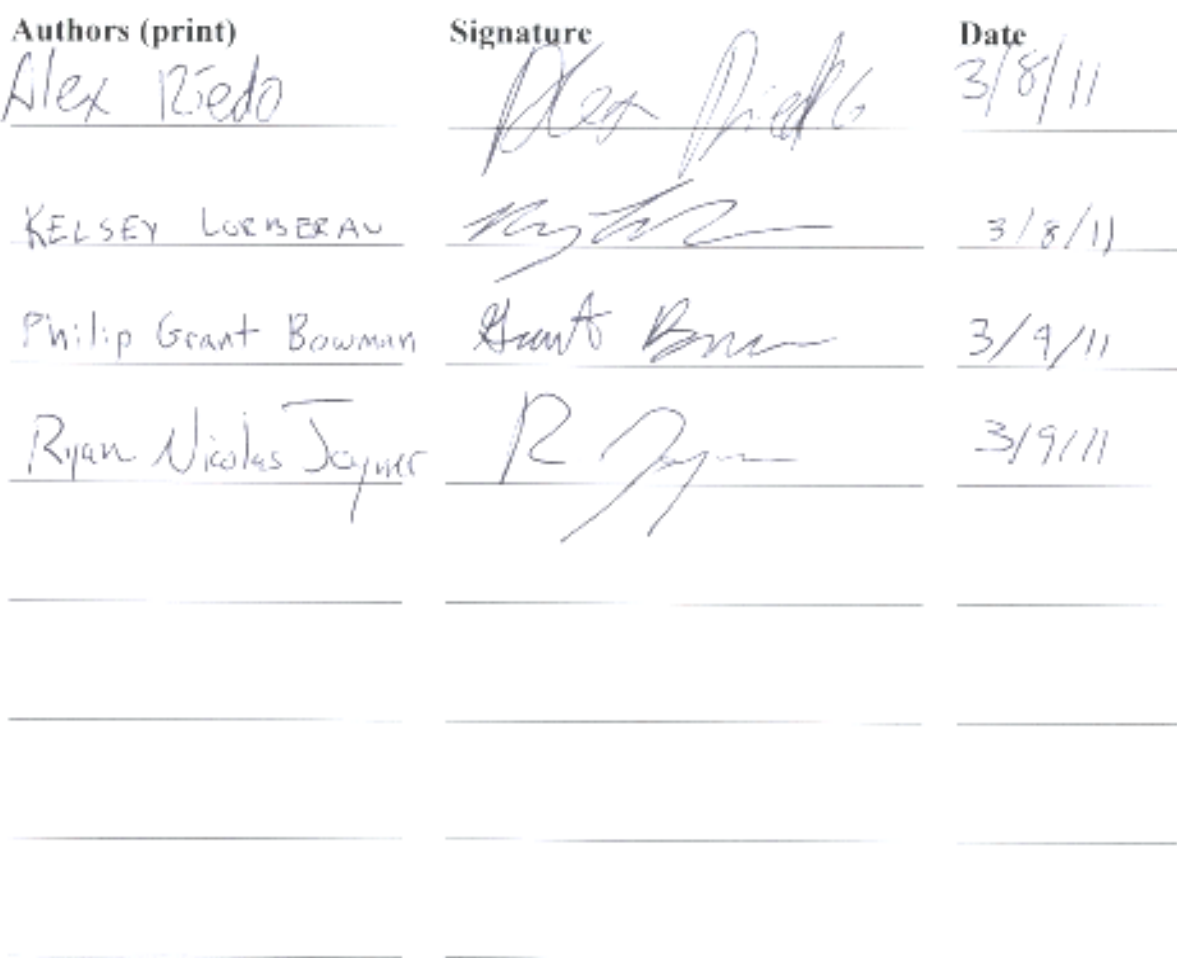 Authors (print) Signature Date
Alex Riedo Alex Riedo 3/8/11
KELSEY 3/8/11
Philip Grant Bowman Grant 3/9/11
Ryan Nicolas Joyner R. Joyner 3/9/11